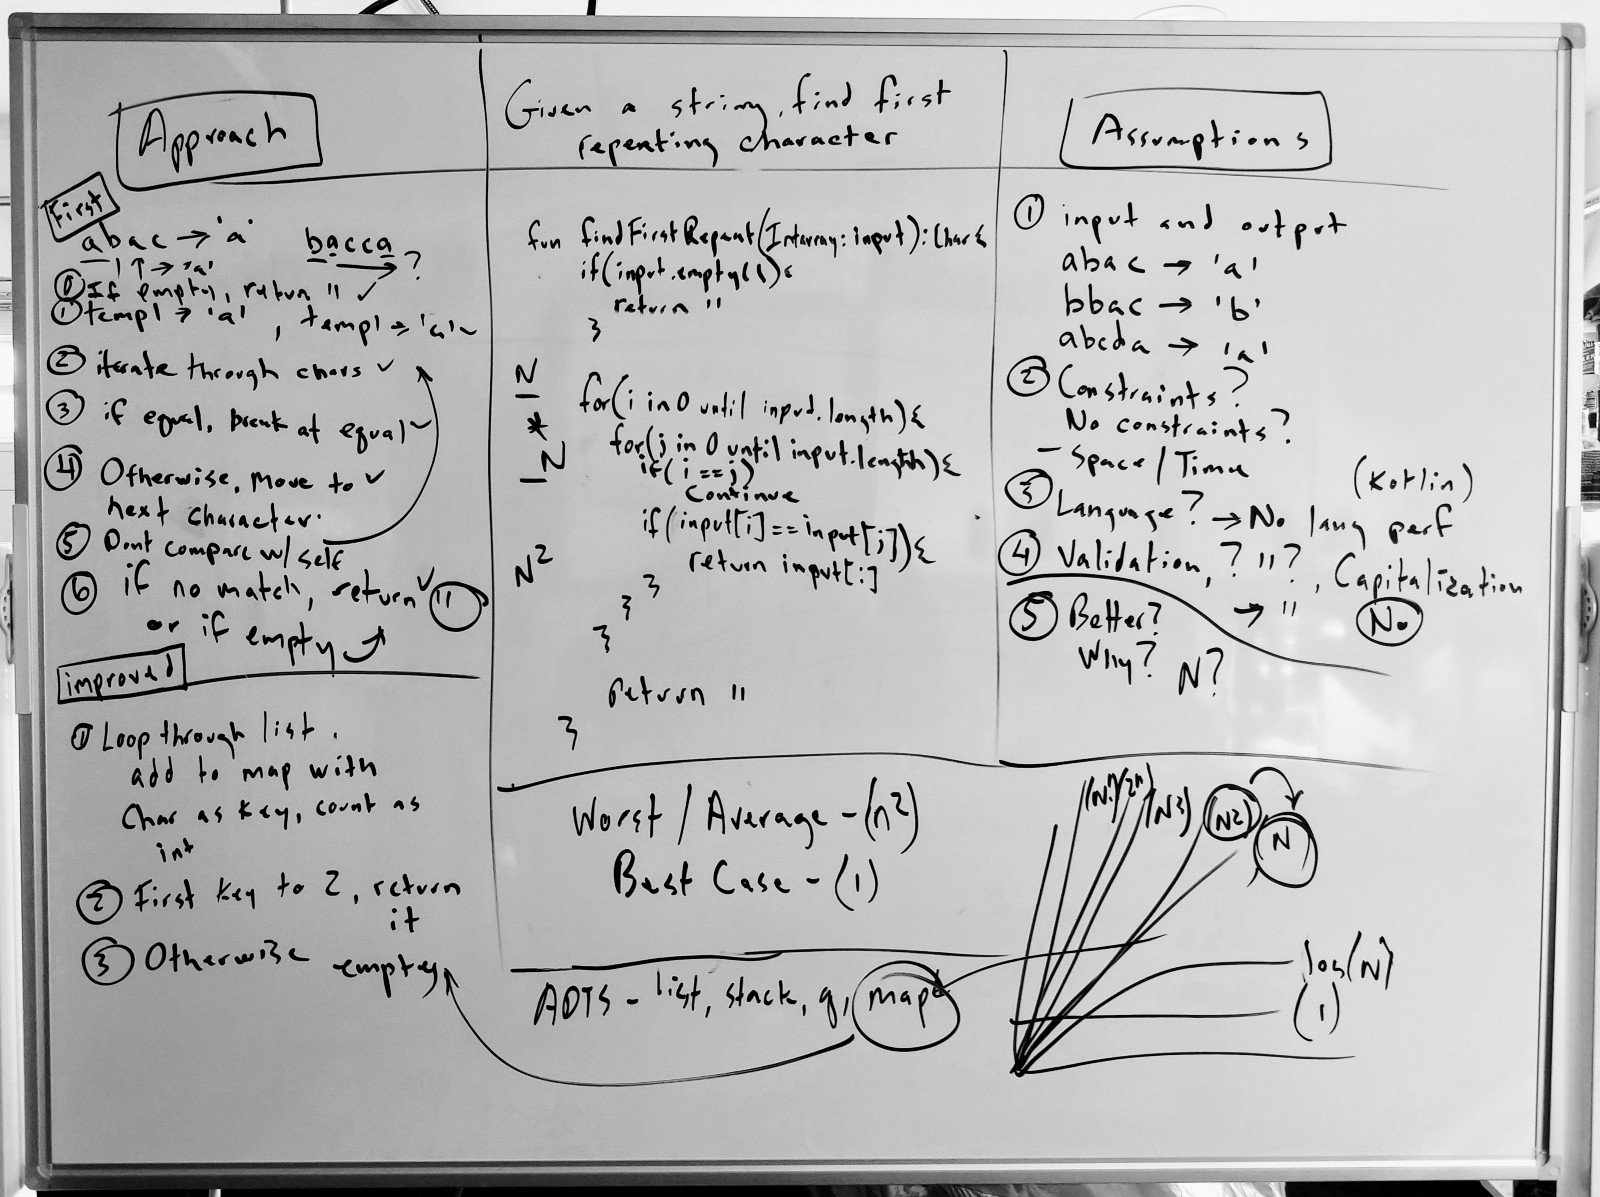 Approach
First
abac → 'a'
bacca
?
→ 'a'
⓪ If empty, return '' ✓
① temp1 → 'a', temp1 → 'a' ~
② iterate through chars ✓
③ if equal, break at equal ✓
④ Otherwise, move to ✓
next character.
⑤ Dont compare w/ self
⑥ if no match, return ✓ ''
or if empty
improved
① Loop through list.
add to map with
Char as key, count as
int
② First key to 2, return
it
③ Otherwise empty
Given a string, find first
repeating character
fun findFirstRepeat(Intarray: input): Char{
if(input.empty()){
return ''
}
N
*
N
N²
for(i in 0 until input.length){
for(j in 0 until input.length){
if(i == j)
Continue
if(input[i] == input[j]){
return input[i]
}
}
}
return ''
}
Worst / Average - (n2)
Best Case - (1)
ADTS - list, stack, q, map
Assumptions
① input and output
abac → 'a'
bbac → 'b'
abcda → 'a'
② Constraints?
No constraints?
- Space / Time
③ Language? → No lang perf
(Kotlin)
④ Validation, ? ''?, Capitalization
→ ''
No
⑤ Better?
Why?
N?
(N!) 2n) (N3) (N2) N
log(N)
(1)